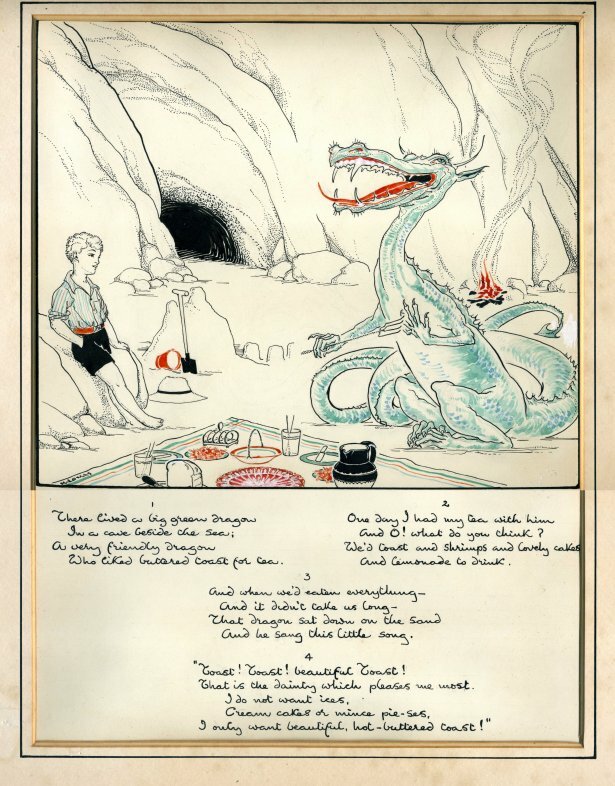 1
There lived a big green dragon
In a cave beside the sea;
A very friendly dragon
Who liked buttered toast for tea.
2
One day I had my tea with him
And O! what do you think?
We'd toast and shrimps and lovely cakes
And lemonade to drink.
3
And when we'd eaten everything—
And it didn't take us long—
That dragon sat down on the sand
And he sang this little song.
4
"Toast! Toast! beautiful Toast!
That is the dainty which pleases me most.
I do not want ices,
Cream cakes or mince pie-ses,
I only want beautiful, hot-buttered toast!"